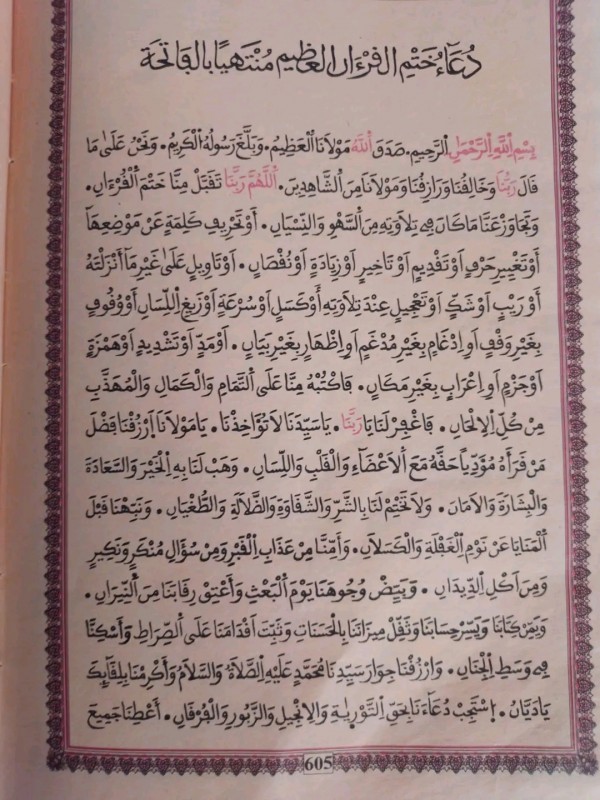 دُعَاءُ خَتْمِ الْقُرْءَانِ الْعَظِيمِ مُنْتَهِيًا بِالْفَاتِحَةِ
بِسْمِ اللَّهِ الرَّحْمَٰنِ الرَّحِيمِ. صَدَقَ اللَّهُ مَوْلَانَا الْعَظِيمُ. وَبَلَّغَ رَسُولُهُ الْكَرِيمُ. وَنَحْنُ عَلَىٰ مَا
قَالَ رَبُّنَا وَخَالِقُنَا وَرَازِقُنَا وَمَوْلَانَا مِنَ الشَّاهِدِينَ. اللَّهُمَّ رَبَّنَا تَقَبَّلْ مِنَّا خَتْمَ الْقُرْءَانِ.
وَتَجَاوَزْ عَنَّا مَا كَانَ فِي تِلَاوَتِهِ مِنَ السَّهْوِ وَالنِّسْيَانِ. أَوْ تَحْرِيفِ كَلِمَةٍ عَنْ مَوْضِعِهَا
أَوْ تَغْيِيرِ حَرْفٍ أَوْ تَقْدِيمٍ أَوْ تَاخِيرٍ أَوْ زِيَادَةٍ أَوْ نُقْصَانٍ. أَوْ تَاوِيلٍ عَلَىٰ غَيْرِ مَا أَنْزَلْتَهُ
أَوْ رَيْبٍ أَوْ شَكٍّ أَوْ تَعْجِيلٍ عِنْدَ تِلَاوَتِهِ أَوْ كَسَلٍ أَوْ سُرْعَةٍ أَوْ زَيْغِ اللِّسَانِ أَوْ وُقُوفٍ
بِغَيْرِ وَقْفٍ أَوِ ادْغَامٍ بِغَيْرِ مُدْغَمٍ أَوِ اظْهَارٍ بِغَيْرِ بَيَانٍ. أَوْ مَدٍّ أَوْ تَشْدِيدٍ أَوْ هَمْزَةٍ
أَوْ جَزْمٍ أَوِ اعْرَابٍ بِغَيْرِ مَكَانٍ. فَاكْتُبْهُ مِنَّا عَلَى التَّمَامِ وَالْكَمَالِ وَالْمُهَذَّبِ
مِنْ كُلِّ الِالْحَانِ. فَاغْفِرْ لَنَا يَا رَبَّنَا. يَا سَيِّدَنَا لَا تُؤَاخِذْنَا. يَا مَوْلَانَا ارْزُقْنَا فَضْلَ
مَنْ قَرَأَهُ مُؤَدِّيًا حَقَّهُ مَعَ الْأَعْضَاءِ وَالْقَلْبِ وَاللِّسَانِ. وَهَبْ لَنَا بِهِ الْخَيْرَ وَالسَّعَادَةَ
وَالْبِشَارَةَ وَالْأَمَانَ. وَلَا تَخْتِمْ لَنَا بِالشَّرِّ وَالشَّقَاوَةِ وَالضَّلَالَةِ وَالطُّغْيَانِ. وَنَبِّهْنَا قَبْلَ
الْمَنَايَا عَنْ نَوْمِ الْغَفْلَةِ وَالْكَسَلَانِ. وَأَمِّنَّا مِنْ عَذَابِ الْقَبْرِ وَمِنْ سُؤَالِ مُنْكَرٍ وَنَكِيرٍ
وَمِنَ اكْلِ الدِّيدَانِ. وَبَيِّضْ وُجُوهَنَا يَوْمَ الْبَعْثِ وَأَعْتِقْ رِقَابَنَا مِنَ النِّيرَانِ.
وَيَمِّنْ كِتَابَنَا وَيَسِّرْ حِسَابَنَا وَثَقِّلْ مِيزَانَنَا بِالْحَسَنَاتِ وَثَبِّتْ أَقْدَامَنَا عَلَى الصِّرَاطِ وَأَسْكِنَّا
فِي وَسَطِ الْجِنَانِ. وَارْزُقْنَا جِوَارَ سَيِّدِنَا مُحَمَّدٍ عَلَيْهِ الصَّلَاةُ وَالسَّلَامُ وَأَكْرِمْنَا بِلِقَائِكَ
يَا دَيَّانُ. اسْتَجِبْ دُعَاءَنَا بِحَقِّ التَّوْرَيٰةِ وَالِانْجِيلِ وَالزَّبُورِ وَالْفُرْقَانِ. أَعْطِنَا جَمِيعَ
605